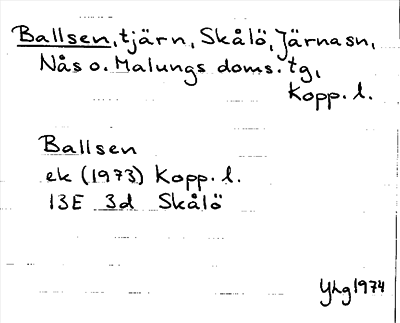 Ballsen, tjärn, Skålö, Järnasn,
Nås o. Malungs doms. tg,
Kopp. l.
Ballsen
ek (1973) Kopp. l.
13E 3d Skålö
YLg 1974